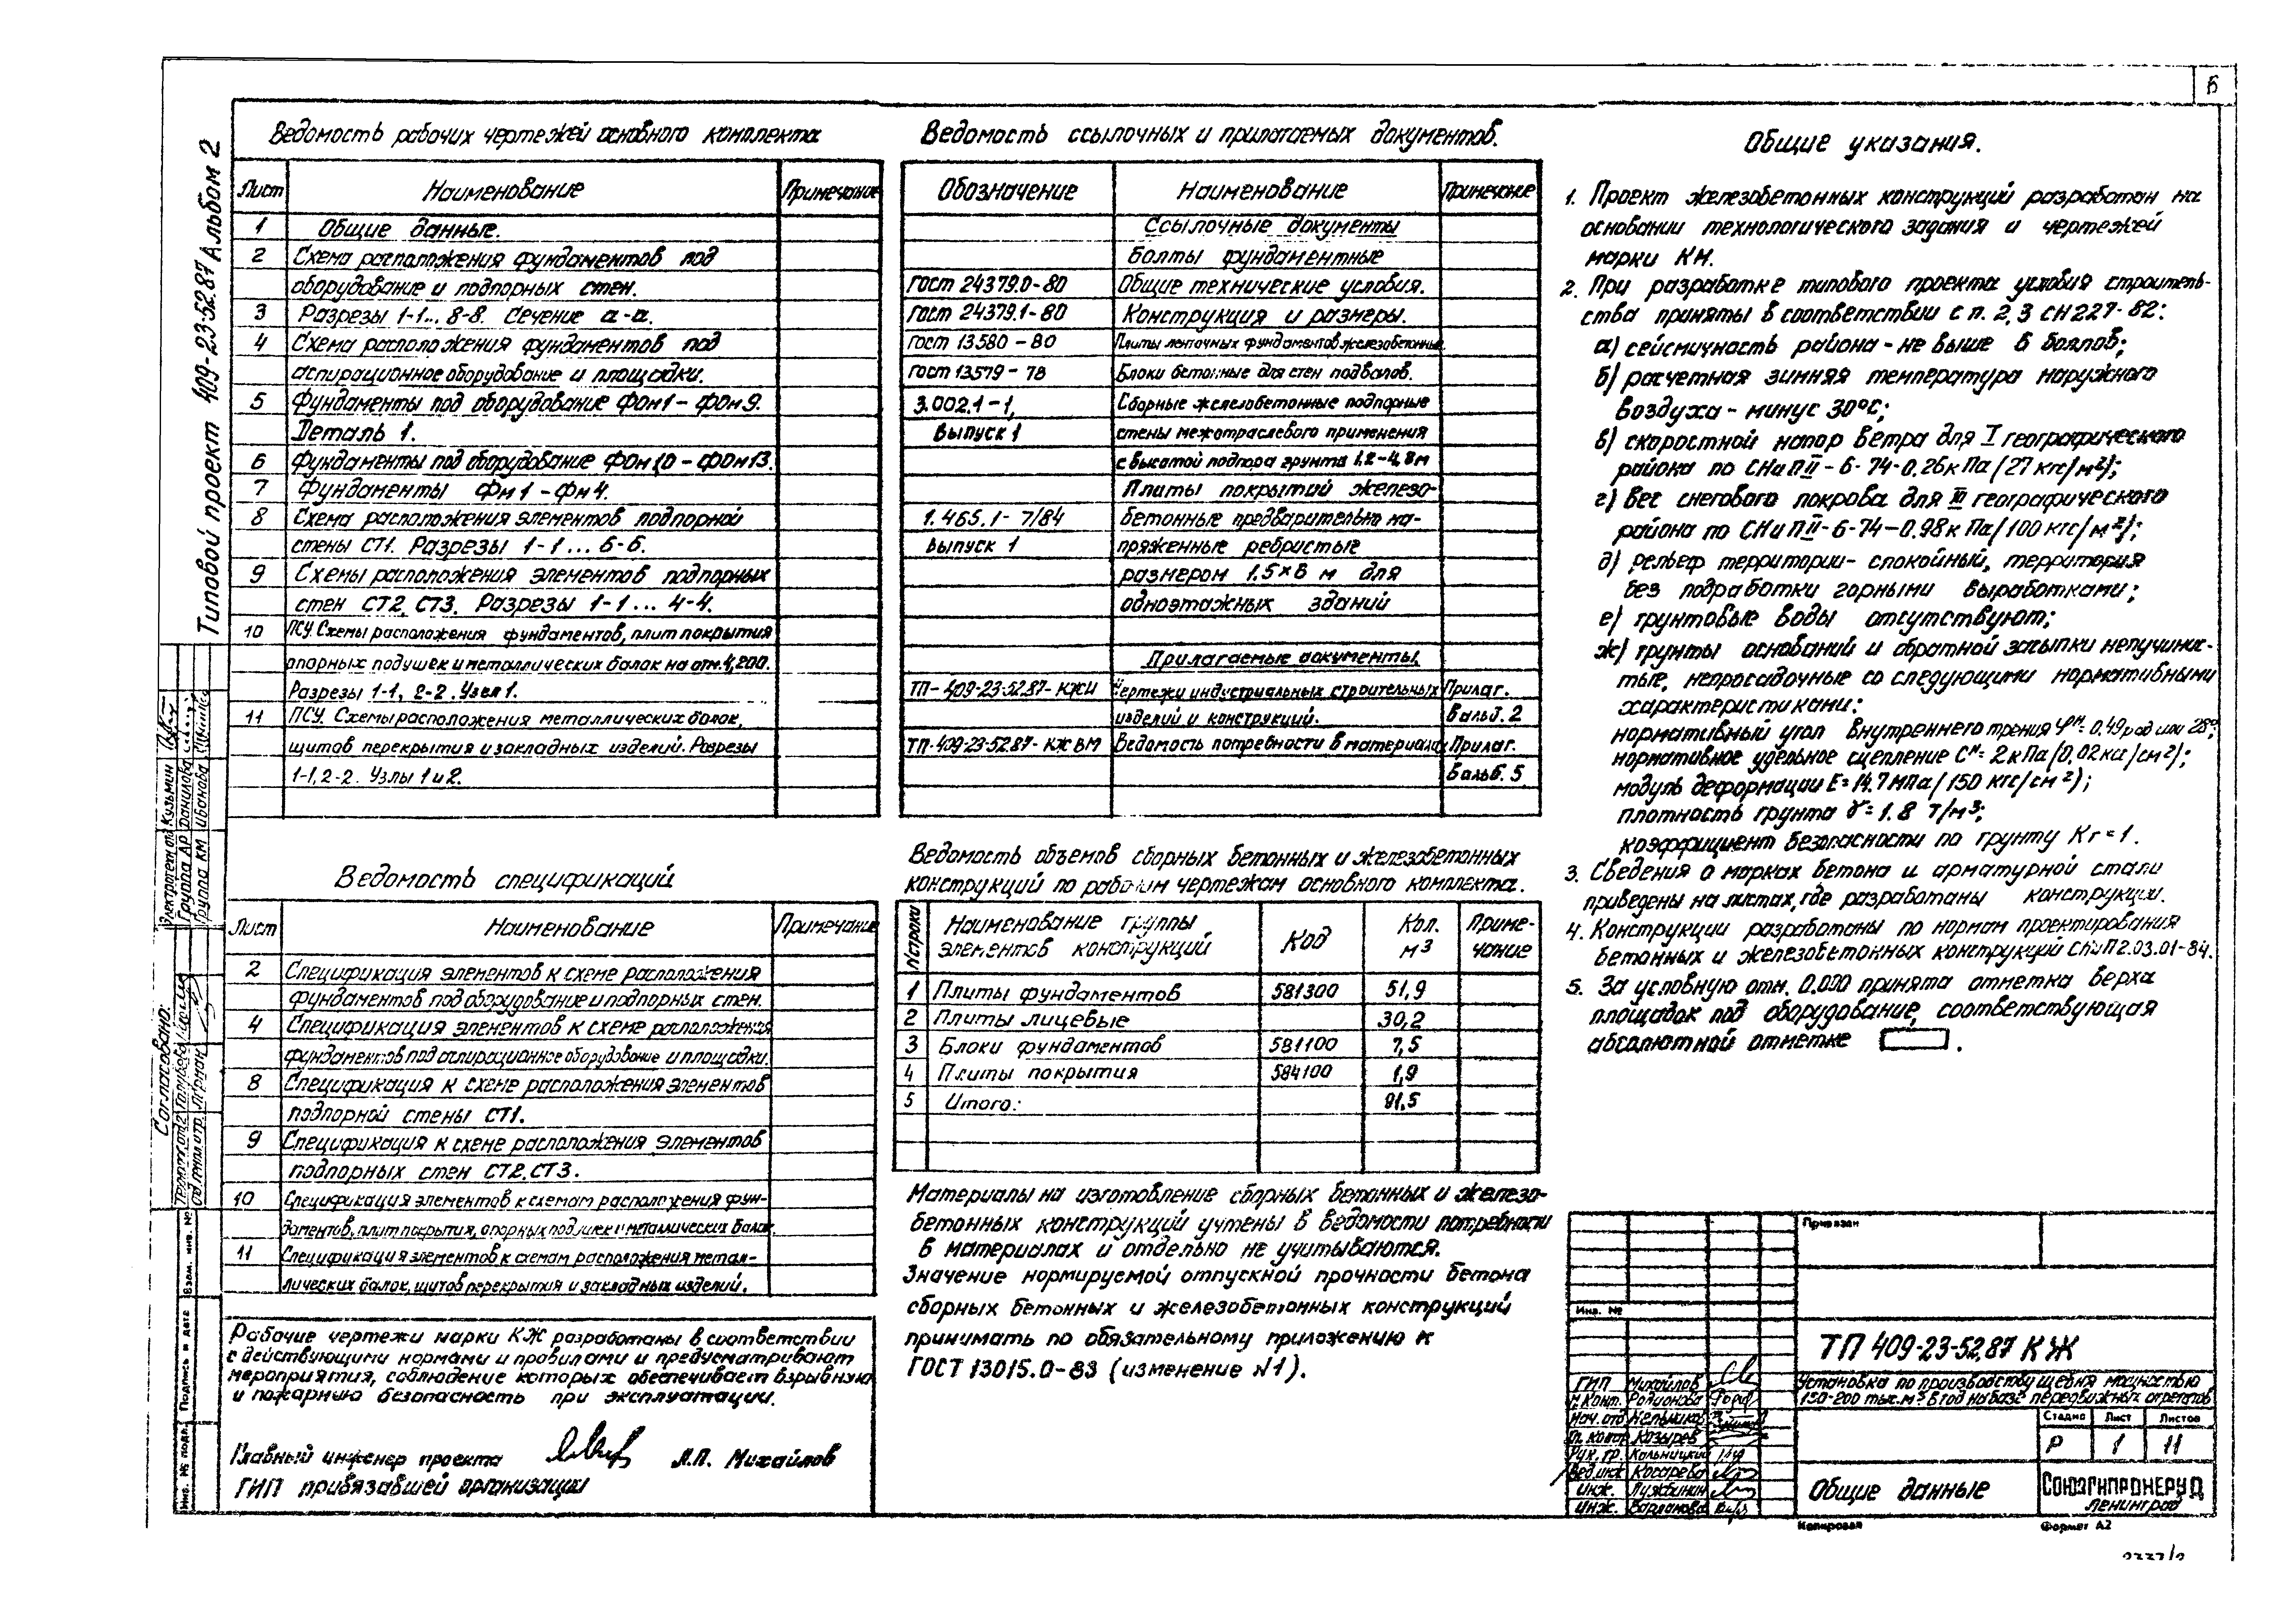 Б
Типовой проект 409-23-52.87 Альбом 2
Ведомость рабочих чертежей основного комплекта
Лист Наименование Примечание
1 Общие данные.
2 Схема расположения фундаментов под
оборудование и подпорных стен.
3 Разрезы 1-1... 8-8. Сечение а-а.
4 Схема расположения фундаментов под
аспирационное оборудование и площадки.
5 Фундаменты под оборудование ФОм1 - ФОм9.
Деталь 1.
6 Фундаменты под оборудование ФОм10 - ФОм13.
7 Фундаменты Фм1 - Фм4.
8 Схема расположения элементов подпорной
стены СТ1. Разрезы 1-1 ... 6-6.
9 Схемы расположения элементов подпорных
стен СТ2, СТ3. Разрезы 1-1 ... 4-4.
10 ПСУ. Схемы расположения фундаментов, плит покрытия
опорных подушек и металлических балок на отм. 4,200.
Разрезы 1-1, 2-2. Узел 1.
11 ПСУ. Схемы расположения металлических балок,
щитов перекрытия и закладных изделий. Разрезы
1-1, 2-2. Узлы 1 и 2.
Ведомость спецификаций
Лист Наименование Примечание
2 Спецификация элементов к схеме расположения
фундаментов под оборудование и подпорных стен.
4 Спецификация элементов к схеме расположения
фундаментов под аспирационное оборудование и площадки.
8 Спецификация к схеме расположения элементов
подпорной стены СТ1.
9 Спецификация к схеме расположения элементов
подпорных стен СТ2, СТ3.
10 Спецификация элементов к схемам расположения фун-
даментов, плит покрытия, опорных подушек и металлических балок.
11 Спецификация элементов к схемам расположения метал-
лических балок, щитов перекрытия и закладных изделий.
Рабочие чертежи марки КЖ разработаны в соответствии
с действующими нормами и правилами и предусматривают
мероприятия, соблюдение которых обеспечивает взрывную
и пожарную безопасность при эксплуатации.
Главный инженер проекта Л.П. Михайлов
ГИП привязавшей организации
Ведомость ссылочных и прилагаемых документов.
Обозначение Наименование Примечание
Ссылочные документы
Болты фундаментные
ГОСТ 24379.0-80 Общие технические условия.
ГОСТ 24379.1-80 Конструкция и размеры.
ГОСТ 13580-80 Плиты ленточных фундаментов железобетонные.
ГОСТ 13579-78 Блоки бетонные для стен подвалов.
3.002.1-1, Сборные железобетонные подпорные
Выпуск 1 стены межотраслевого применения
с высотой подпора грунта 1,2-4,8 м
Плиты покрытий железо-
1.465.1-7/84 бетонные предварительно на-
Выпуск 1 пряженные ребристые
размером 1.5×6 м для
одноэтажных зданий
Прилагаемые документы.
ТП-409-23-52.87-КЖИ Чертежи индустриальных строительных Прилаг.
изделий и конструкций. В альб. 2
ТП-409-23-52.87-КЖ ВМ Ведомость потребности в материалах Прилаг.
В альб. 5
Ведомость объемов сборных бетонных и железобетонных
конструкций по рабочим чертежам основного комплекта.
№ строки Наименование группы элементов конструкций Код Кол. м³ Приме-чание
1 Плиты фундаментов 581300 51,9
2 Плиты лицевые 30,2
3 Блоки фундаментов 581100 7,5
4 Плиты покрытия 584100 1,9
5 Итого: 91,5
Материалы на изготовление сборных бетонных и железо-
бетонных конструкций учтены в ведомости потребности
в материалах и отдельно не учитываются.
Значение нормируемой отпускной прочности бетона
сборных бетонных и железобетонных конструкций
принимать по обязательному приложению к
ГОСТ 13015.0-83 (изменение №1).
Общие указания.
1. Проект железобетонных конструкций разработан на
основании технологического задания и чертежей
марки КМ.
2. При разработке типового проекта условия строитель-
ства приняты в соответствии с п. 2,3 СН 227-82:
а) сейсмичность района - не выше 6 баллов;
б) расчетная зимняя температура наружного
воздуха - минус 30°С;
в) скоростной напор ветра для I географического
района по СНиП II-6-74-0.26 кПа (27 кгс/м²);
г) вес снегового покрова для III географического
района по СНиП II-6-74-0.98 кПа (100 кгс/м²);
д) рельеф территории - спокойный, территория
без подработки горными выработками;
е) грунтовые воды отсутствуют;
ж) грунты оснований и обратной засыпки непучинис-
тые, непросадочные со следующими нормативными
характеристиками:
нормативный угол внутреннего трения φн = 0.49 рад или 28°;
нормативное удельное сцепление Сн = 2 кПа (0,02 кгс/см²);
модуль деформации Е = 14.7 МПа (150 кгс/см²);
плотность грунта γ = 1.8 т/м³;
коэффициент безопасности по грунту Кг = 1.
3. Сведения о марках бетона и арматурной стали
приведены на листах, где разработаны конструкции.
4. Конструкции разработаны по нормам проектирования
бетонных и железобетонных конструкций СНиП 2.03.01-84.
5. За условную отм. 0.000 принята отметка верха
площадок под оборудование, соответствующая
абсолютной отметке .
Привязан
Инв. №
ТП 409-23-52.87 КЖ
Установка по производству щебня мощностью
150-200 тыс.м³ в год на базе передвижных агрегатов
ГИП Михайлов
Н.конт. Родионова
Нач. отд
Гл. констр Козырев
Рук. гр.
Вед.инж Косарева
Инж. Лужбинин
Инж. Варламова
Стадия Лист Листов
Р 1 11
Общие данные
СОЮЗГИПРОНЕРУД
Ленинград
Копировал Формат А2
Согласовано:
Кузьмин
Группа АР Данилова
Группа КМ Иванова
Взам. инв. №
Подпись и дата
Инв. № подл.